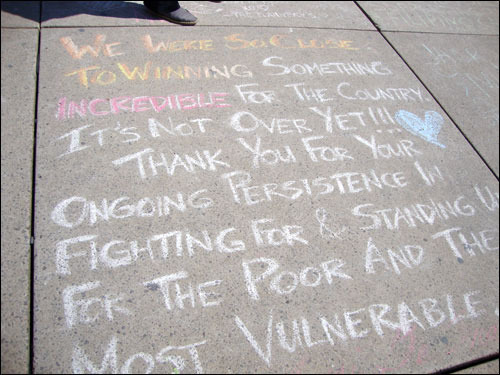 WE WERE SO CLOSE
TO WINNING SOMETHING
INCREDIBLE FOR THE COUNTRY.
IT'S NOT OVER YET!!!
THANK YOU FOR YOUR
ONGOING PERSISTENCE IN
FIGHTING FOR & STANDING U
FOR THE POOR AND THE
MOST VULNERABLE.